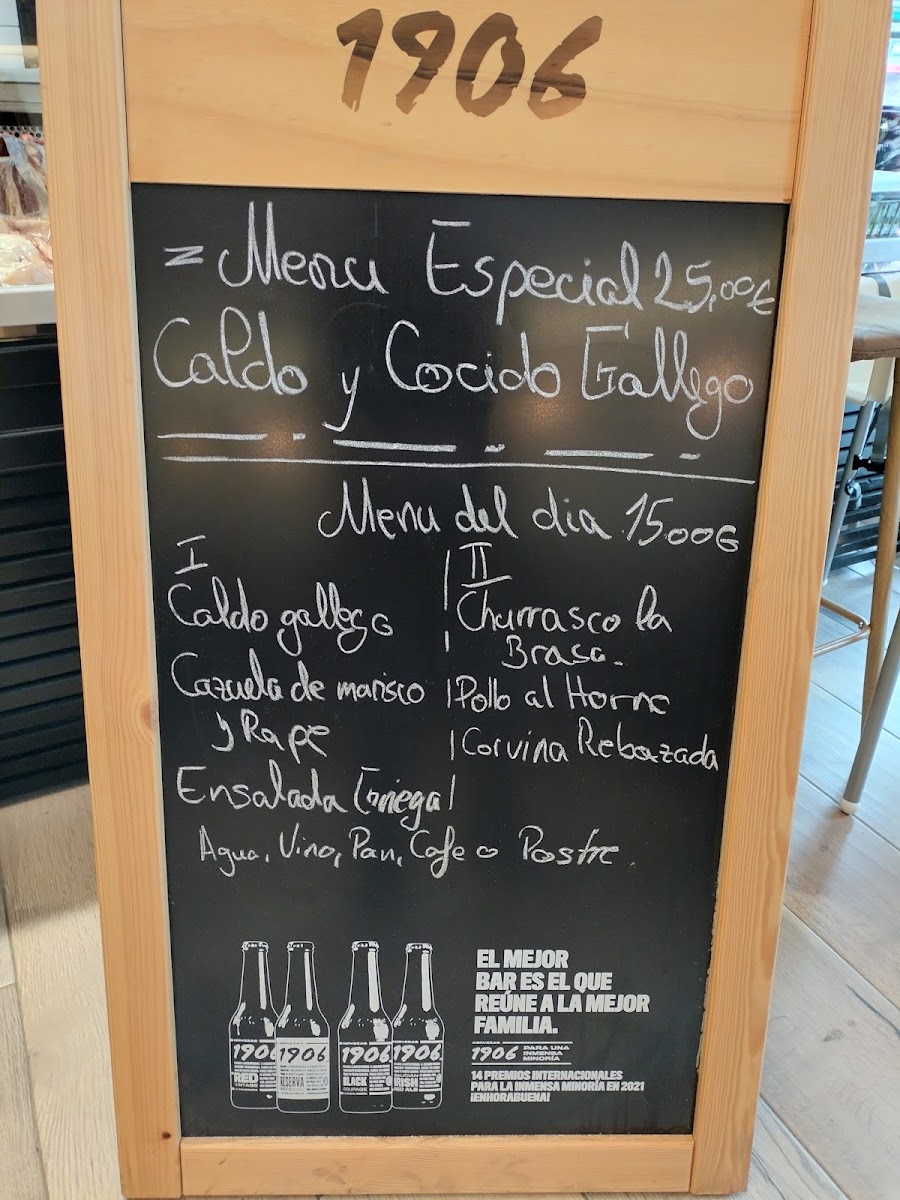 1906
= Menu Especial 25,00€
Caldo y Cocido Gallego
Menu del dia 15.00€
I
Caldo gallego
Cazuela de marisco
y Rape
Ensalada Griega
II
Churrasco la
Brasa.
Pollo al Horno
Corvina Rebozada
Agua, Vino, Pan, Cafe o Postre.
1906
RED
1906
RESERVA
1906
BLACK
1906
IRISH
RED ALE
EL MEJOR
BAR ES EL QUE
REÚNE A LA MEJOR
FAMILIA.
CERVEZAS
1906
PARA UNA
INMENSA
MINORÍA
14 PREMIOS INTERNACIONALES
PARA LA INMENSA MINORÍA EN 2021
¡ENHORABUENA!